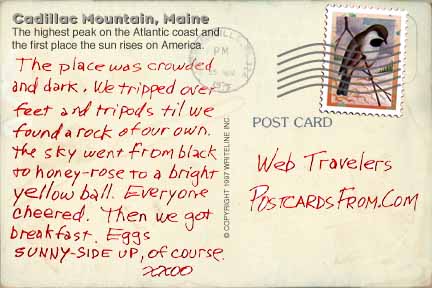 Cadillac Mountain, Maine
The highest peak on the Atlantic coast and
the first place the sun rises on America.
The place was crowded
and dark. We tripped over
feet and tripods til we
found a rock of our own.
The sky went from black
to honey-rose to a bright
yellow ball. Everyone
cheered. Then we got
breakfast. Eggs
SUNNY-SIDE UP, of course.
xxoo
© COPYRIGHT 1997 WRITELINE INC
PM
POST CARD
Web Travelers
PostcardsFrom.Com